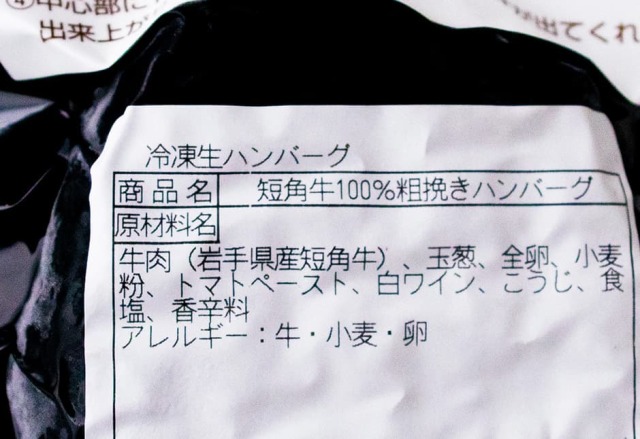 ④中心部に
出来上が
が出てくれ
冷凍生ハンバーグ
商品名 短角牛100%粗挽きハンバーグ
原材料名
牛肉（岩手県産短角牛）、玉葱、全卵、小麦
粉、トマトペースト、白ワイン、こうじ、食
塩、香辛料
アレルギー：牛・小麦・卵